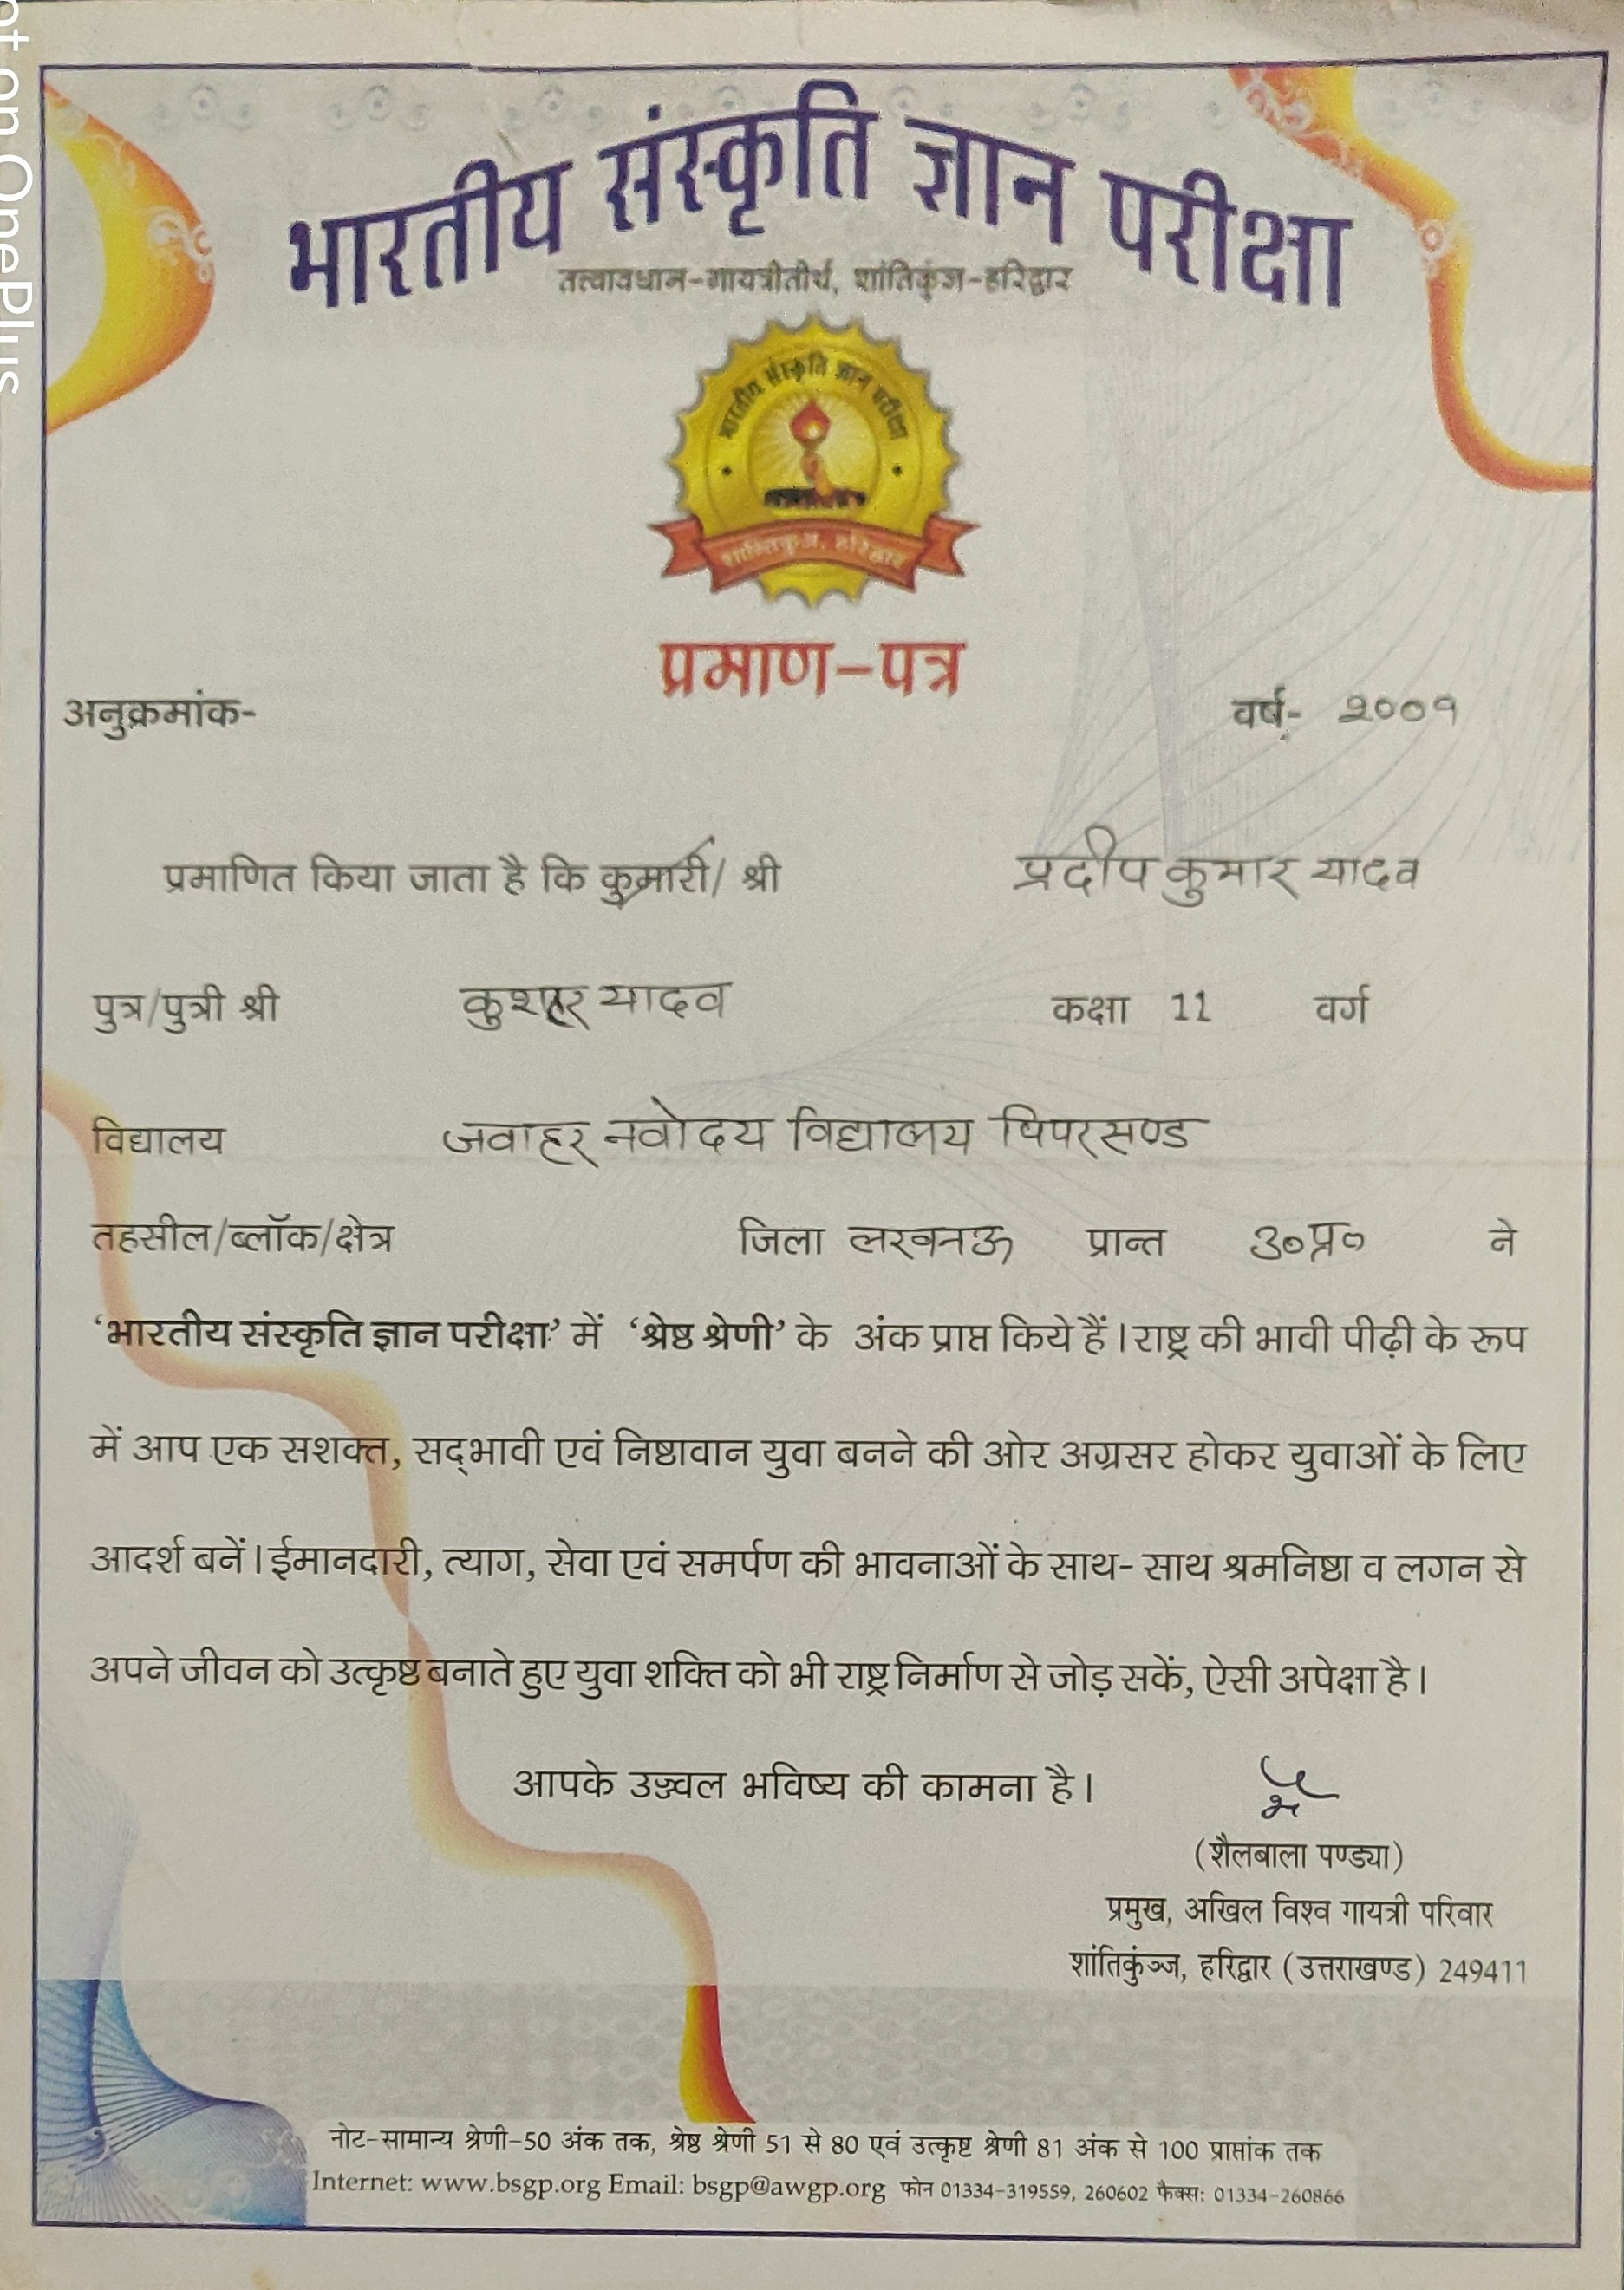 भारतीय संस्कृति ज्ञान परीक्षा
तत्वावधान-गायत्रीतीर्थ, शांतिकुंज-हरिद्वार
भारतीय संस्कृति ज्ञान परीक्षा
शान्तिकुञ्ज, हरिद्वार
प्रमाण-पत्र
अनुक्रमांक- वर्ष- २००९
प्रमाणित किया जाता है कि कुमारी/ श्री प्रदीप कुमार यादव
पुत्र/पुत्री श्री यादव कक्षा 11 वर्ग
विद्यालय जवाहर नवोदय विद्यालय पिपरसण्ड
तहसील/ब्लॉक/क्षेत्र जिला लखनऊ प्रान्त उ०प्र० ने
‘भारतीय संस्कृति ज्ञान परीक्षा’ में ‘श्रेष्ठ श्रेणी’ के अंक प्राप्त किये हैं। राष्ट्र की भावी पीढ़ी के रूप
में आप एक सशक्त, सद्‌भावी एवं निष्ठावान युवा बनने की ओर अग्रसर होकर युवाओं के लिए
आदर्श बनें। ईमानदारी, त्याग, सेवा एवं समर्पण की भावनाओं के साथ- साथ श्रमनिष्ठा व लगन से
अपने जीवन को उत्कृष्ट बनाते हुए युवा शक्ति को भी राष्ट्र निर्माण से जोड़ सकें, ऐसी अपेक्षा है।
आपके उज्ज्वल भविष्य की कामना है।
(शैलबाला पण्ड्या)
प्रमुख, अखिल विश्व गायत्री परिवार
शांतिकुंञ्ज, हरिद्वार (उत्तराखण्ड) 249411
नोट-सामान्य श्रेणी-50 अंक तक, श्रेष्ठ श्रेणी 51 से 80 एवं उत्कृष्ट श्रेणी 81 अंक से 100 प्राप्तांक तक
Internet: www.bsgp.org Email: bsgp@awgp.org फोन 01334-319559, 260602 फैक्स: 01334-260866
on OnePlus